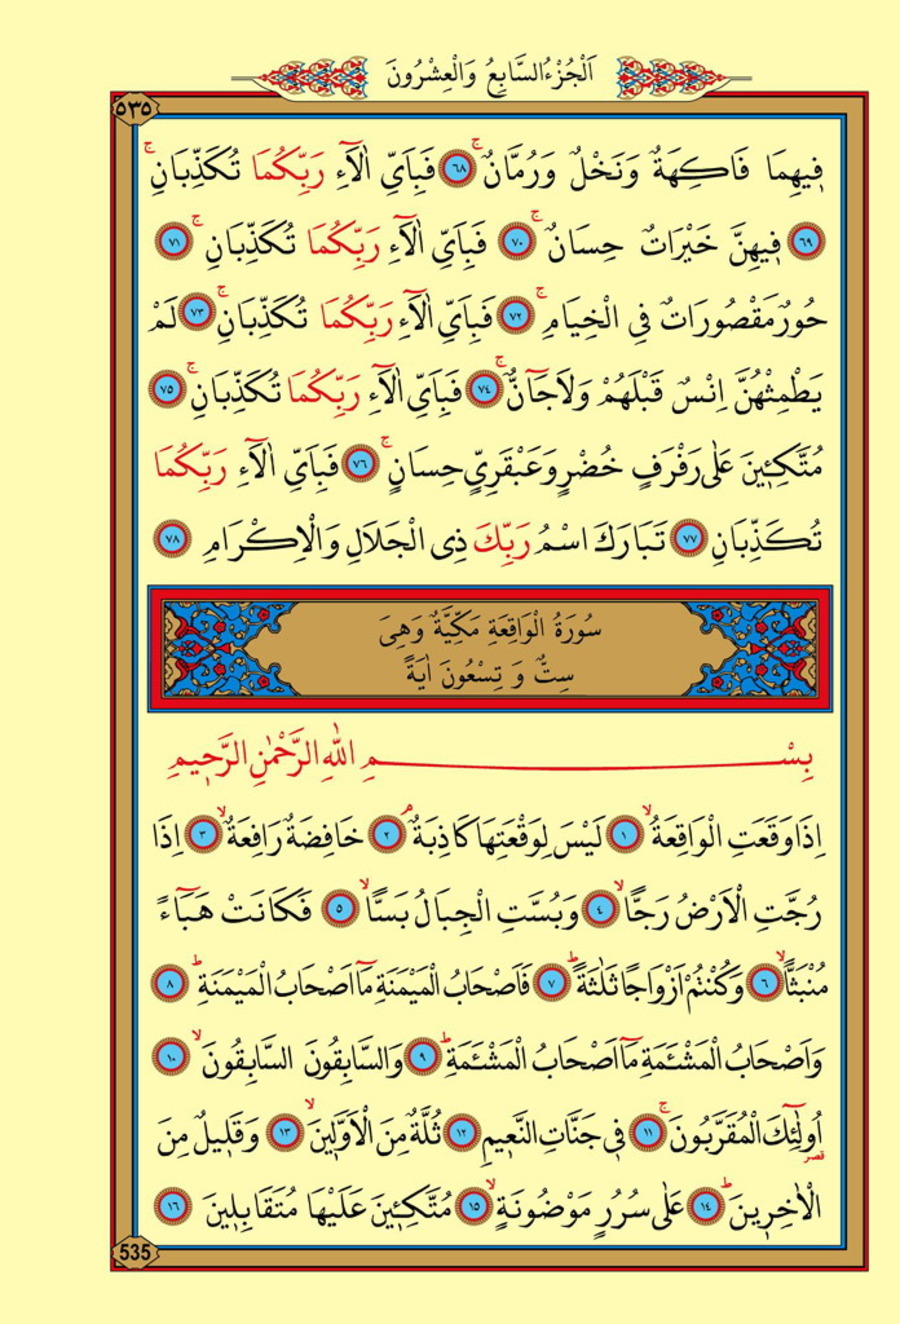 اَلْجُزْءُ السَّابِعُ وَالْعِشْرُونَ
٥٣٥
فِيهِمَا فَاكِهَةٌ وَنَخْلٌ وَرُمَّانٌۚ ٦٨ فَبِاَيِّ اٰلَٓاءِ رَبِّكُمَا تُكَذِّبَانِۚ
٦٩ فِيهِنَّ خَيْرَاتٌ حِسَانٌۚ ٧٠ فَبِاَيِّ اٰلَٓاءِ رَبِّكُمَا تُكَذِّبَانِۚ ٧١
حُورٌ مَقْصُورَاتٌ فِي الْخِيَامِۚ ٧٢ فَبِاَيِّ اٰلَٓاءِ رَبِّكُمَا تُكَذِّبَانِۚ ٧٣ لَمْ
يَطْمِثْهُنَّ اِنْسٌ قَبْلَهُمْ وَلَا جَٓانٌّۚ ٧٤ فَبِاَيِّ اٰلَٓاءِ رَبِّكُمَا تُكَذِّبَانِۚ ٧٥
مُتَّكِـِٔينَ عَلٰى رَفْرَفٍ خُضْرٍ وَعَبْقَرِيٍّ حِسَانٍۚ ٧٦ فَبِاَيِّ اٰلَٓاءِ رَبِّكُمَا
تُكَذِّبَانِ ٧٧ تَبَارَكَ اسْمُ رَبِّكَ ذِي الْجَلَالِ وَالْاِكْرَامِ ٧٨
سُورَةُ الْوَاقِعَةِ مَكِّيَّةٌ وَهِيَ
سِتٌّ وَ تِسْعُونَ اٰيَةً
بِسْمِ اللّٰهِ الرَّحْمٰنِ الرَّحِيمِ
اِذَا وَقَعَتِ الْوَاقِعَةُۙ ١ لَيْسَ لِوَقْعَتِهَا كَاذِبَةٌۢ ٢ خَافِضَةٌ رَافِعَةٌۙ ٣ اِذَا
رُجَّتِ الْاَرْضُ رَجًّاۙ ٤ وَبُسَّتِ الْجِبَالُ بَسًّاۙ ٥ فَكَانَتْ هَبَٓاءً
مُنْبَثًّاۙ ٦ وَكُنْتُمْ اَزْوَاجًا ثَلٰثَةًؕ ٧ فَاَصْحَابُ الْمَيْمَنَةِ مَٓا اَصْحَابُ الْمَيْمَنَةِؕ ٨
وَاَصْحَابُ الْمَشْـَٔمَةِ مَٓا اَصْحَابُ الْمَشْـَٔمَةِؕ ٩ وَالسَّابِقُونَ السَّابِقُونَۙ ١٠
اُو۬لٰٓئِكَ الْمُقَرَّبُونَۚ ١١ فِي جَنَّاتِ النَّعِيمِ ١٢ ثُلَّةٌ مِنَ الْاَوَّلِينَۙ ١٣ وَقَلِيلٌ مِنَ
قصر
الْاٰخِرِينَؕ ١٤ عَلٰى سُرُرٍ مَوْضُونَةٍۙ ١٥ مُتَّكِـِٔينَ عَلَيْهَا مُتَقَابِلِينَ ١٦
535